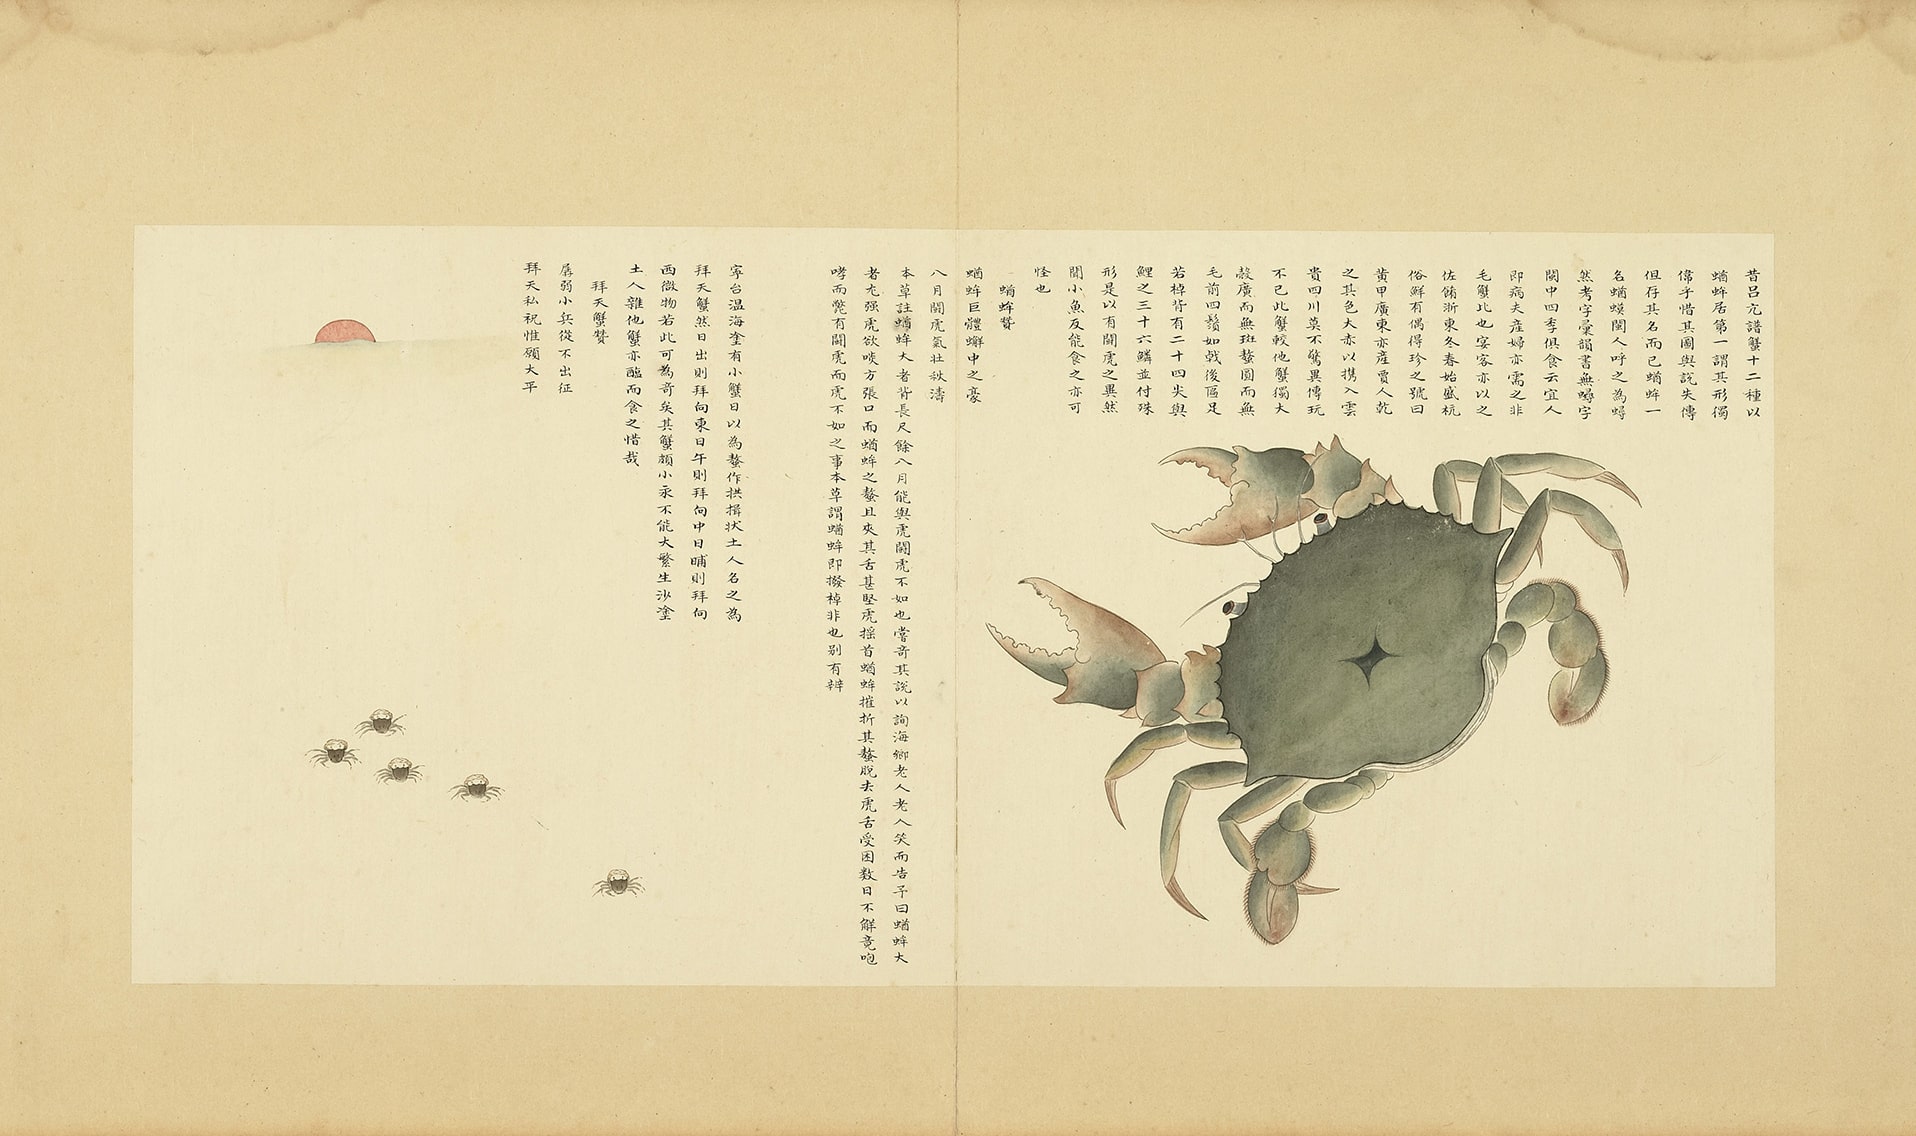 昔呂亢譜蟹十二種以
蝤蛑居第一謂其形獨
偉乎惜其圖與說失傳
但存其名而已蝤蛑一
名蝤蟆閩人呼之為蟳
然考字彙韻書無蟳字
閩中四季俱食云宜人
即病夫產婦亦需之非
毛蟹比也宴客亦以之
佐餚浙東冬春始盛杭
俗鮮有偶得珍之號曰
黃甲廣東亦產賈人乾
之其色大赤以携入雲
貴四川莫不驚異傳玩
不已此蟹較他蟹獨大
殼廣而無斑螯圓而無
毛前四鬚如戟後區足
若棹背有二十四尖與
鯉之三十六鱗並付殊
形是以有鬪虎之異然
閒小魚反能食之亦可
怪也
蝤蛑贊
蝤蛑巨體蠏中之豪
八月鬪虎氣壯秋濤
本草註蝤蛑大者背長尺餘八月能與虎鬪虎不如也嘗奇其說以詢海鄉老人老人笑而告予曰蝤蛑大
者尤强虎欲啖方張口而蝤蛑之螯且夾其舌甚堅虎搖首蝤蛑摧折其螯脫去虎舌受困數日不解竟咆
哮而斃有鬪虎而虎不如之事本草謂蝤蛑即撥棹非也别有辨
寧台溫海塗有小蟹日以為螯作拱揖狀土人名之為
拜天蟹然日出則拜向東日午則拜向中日晡則拜向
西微物若此可為奇矣其蟹頗小永不能大繁生沙塗
土人雜他蟹亦醢而食之惜哉
拜天蟹贊
孱弱小兵從不出征
拜天私祝惟願太平